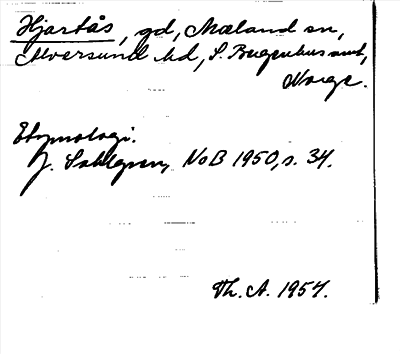 Hjartås, gd, Mæland sn,
Alversund hd, S. Bergenhus amt,
Norge.
Etymologi.
J. Sahlgren, NoB 1950, s. 34.
Th. A. 1957.